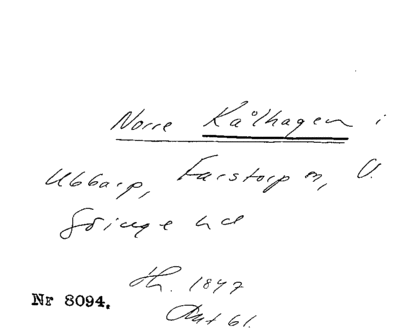 Norre Kålhagen i
Ubbarp, Farstorp sn, V.
Göinge hd
Lh. 1847
Akt 61.
Nr 8094.